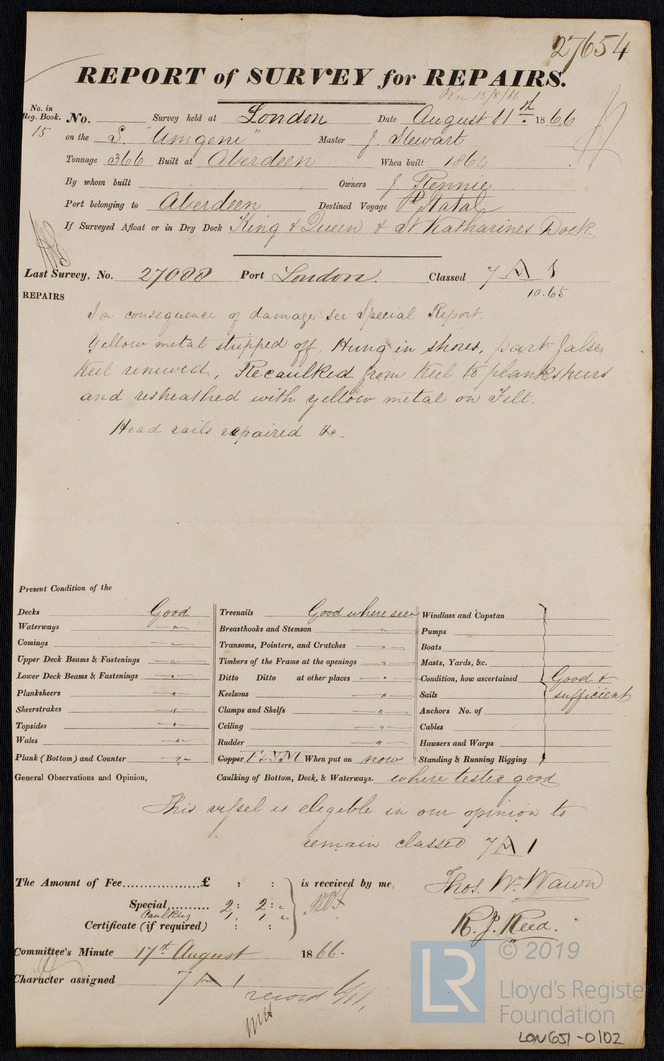 27654
REPORT of SURVEY for REPAIRS.
No. in Reg. Book. 15
No. Survey held at London Date August 11th 1866
on the S. "Umgeni" Master J. Stewart
Tonnage 366 Built at Aberdeen When built 1864
By whom built Owners J Rennie
Port belonging to Aberdeen Destined Voyage Pt Natal
If Surveyed Afloat or in Dry Dock King & Queen & St Katharines Dock
Last Survey, No. 27088 Port London. Classed 7 A 1
10.65
REPAIRS
In consequence of damage see Special Report.
Yellow metal stripped off, Hung in shores, part false
keel renewed, Recaulked from keel to plankshears
and resheathed with yellow metal on Felt.
Head rails repaired &c.
Present Condition of the
Decks Good
Waterways "
Comings "
Upper Deck Beams & Fastenings "
Lower Deck Beams & Fastenings "
Planksheers "
Sheerstrakes "
Topsides "
Wales "
Plank (Bottom) and Counter "
Treenails Good where seen
Breasthooks and Stemson "
Transoms, Pointers, and Crutches "
Timbers of the Frame at the openings "
Ditto Ditto at other places "
Keelsons "
Clamps and Shelfs "
Ceiling "
Rudder "
Copper F & YM When put on now
Windlass and Capstan
Pumps
Boats
Masts, Yards, &c.
Condition, how ascertained Good &
Sails sufficient
Anchors No. of
Cables
Hawsers and Warps
Standing & Running Rigging
General Observations and Opinion, Caulking of Bottom, Deck, & Waterways. where tested good
This vessel is eligible in our opinion to
remain classed 7 A 1
The Amount of Fee £ : : is received by me,
Special 2 : 2 : "
Caulking 1 : 1 : "
Certificate (if required) : :
Thos. Wm. Wawn
R. J. Reed.
Committee's Minute 17th August 1866.
Character assigned 7 A 1
record
© 2019
LR
Lloyd's Register
Foundation
LON651-0102